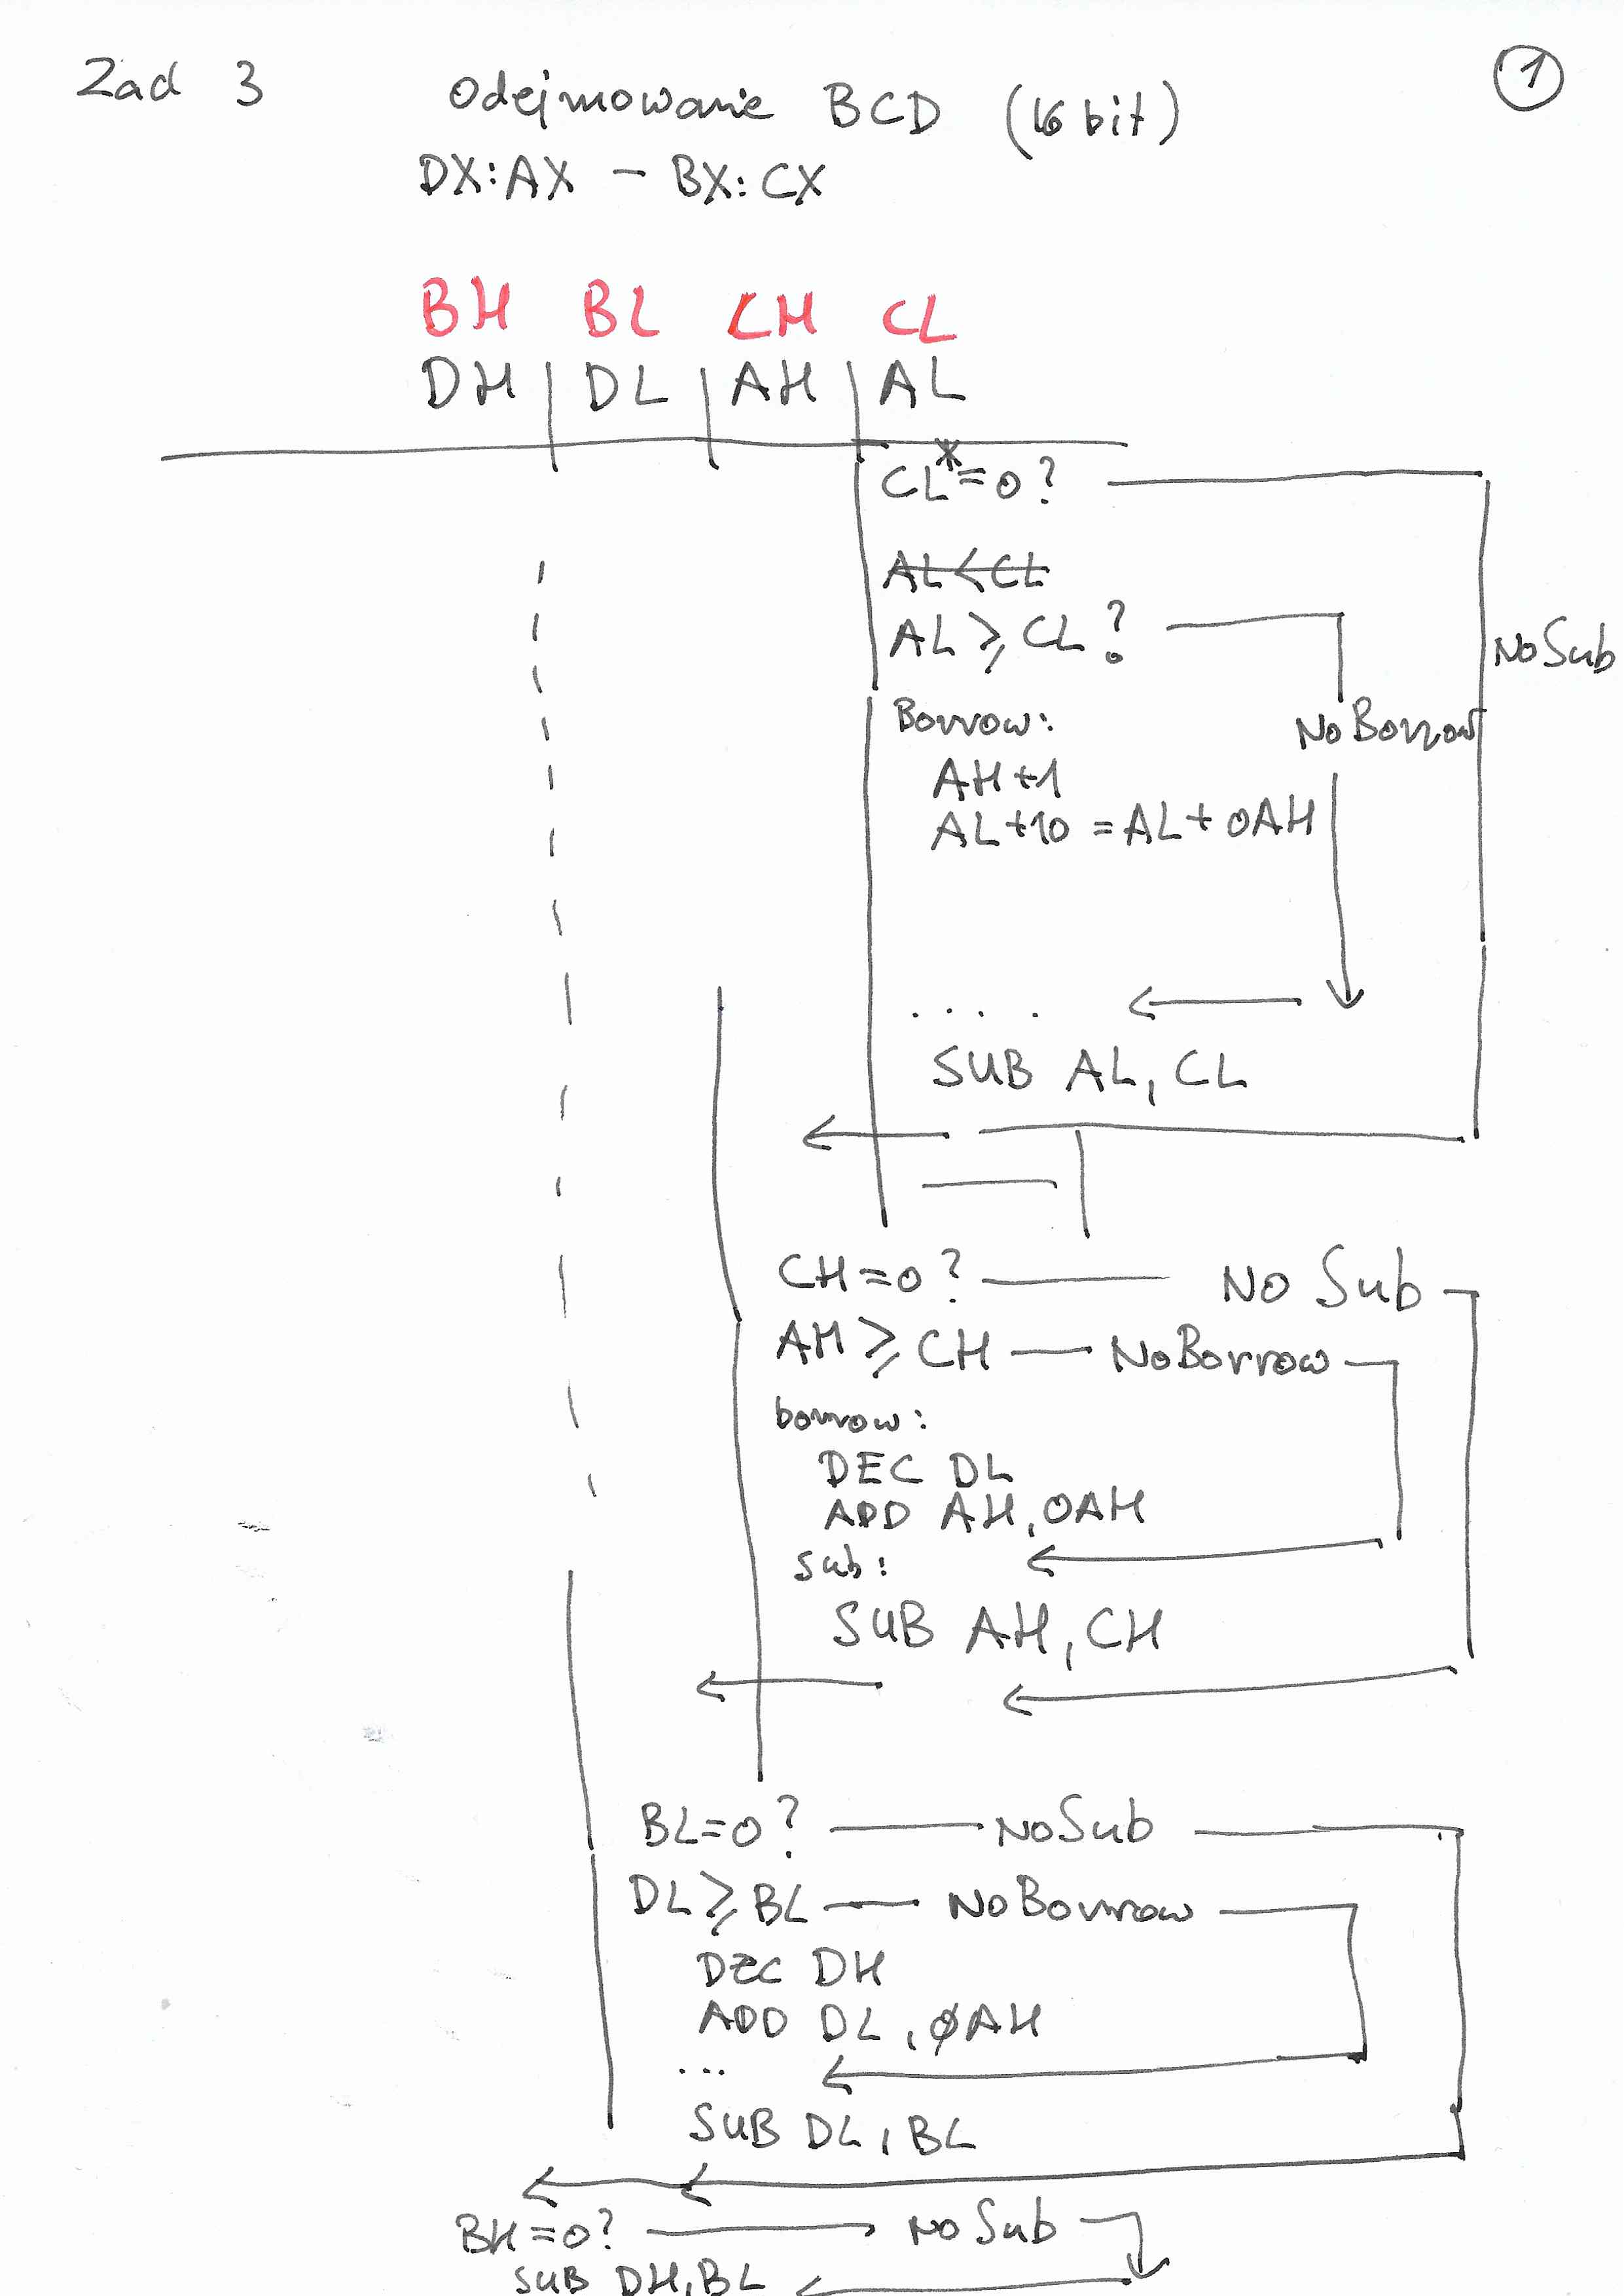 Zad 3 Odejmowanie BCD (16 bit) 1
DX:AX - BX:CX
BH BL CH CL
DH DL AH AL
CL*=0?
AL<CL
AL ⩾ CL ?
NoSub
Borrow:
NoBorrow
AH+1
AL+10 = AL+0AH
. . . .
SUB AL, CL
CH=0? NO Sub
AH ⩾ CH NoBorrow
borrow:
DEC DL
ADD AH, 0AH
sub:
SUB AH, CH
BL=0? NoSub
DL ⩾ BL NoBorrow
DEC DH
ADD DL, 0AH
...
SUB DL, BL
BH=0? NoSub
SUB DH, BL